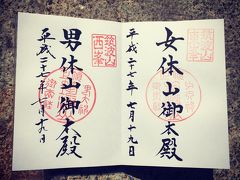 女体山御本殿
平成二十七年 七月十九日
筑波山
男体山御本殿
平成二十七年七月十九日
筑波山
西峯